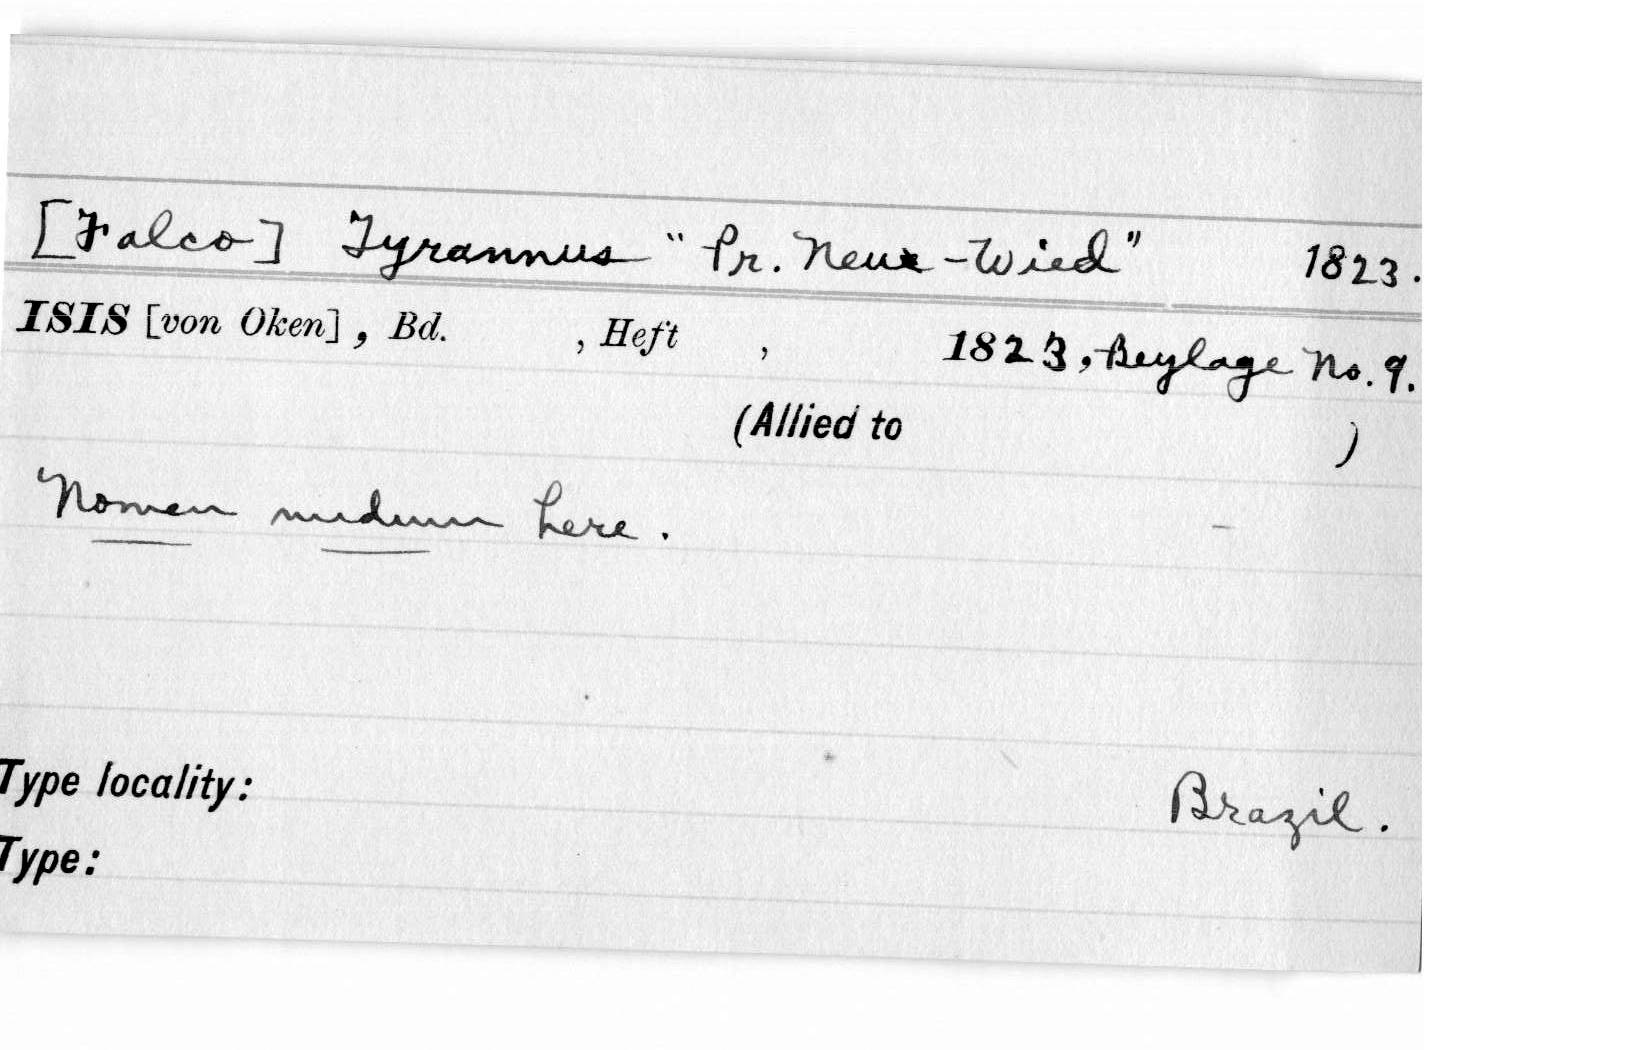 [Falco] Tyrannus "Pr. Neue-Wied" 1823.
ISIS [von Oken], Bd. , Heft , 1823, Beylage No. 9.
(Allied to )
Nomen nudum here.
Type locality: Brazil.
Type: